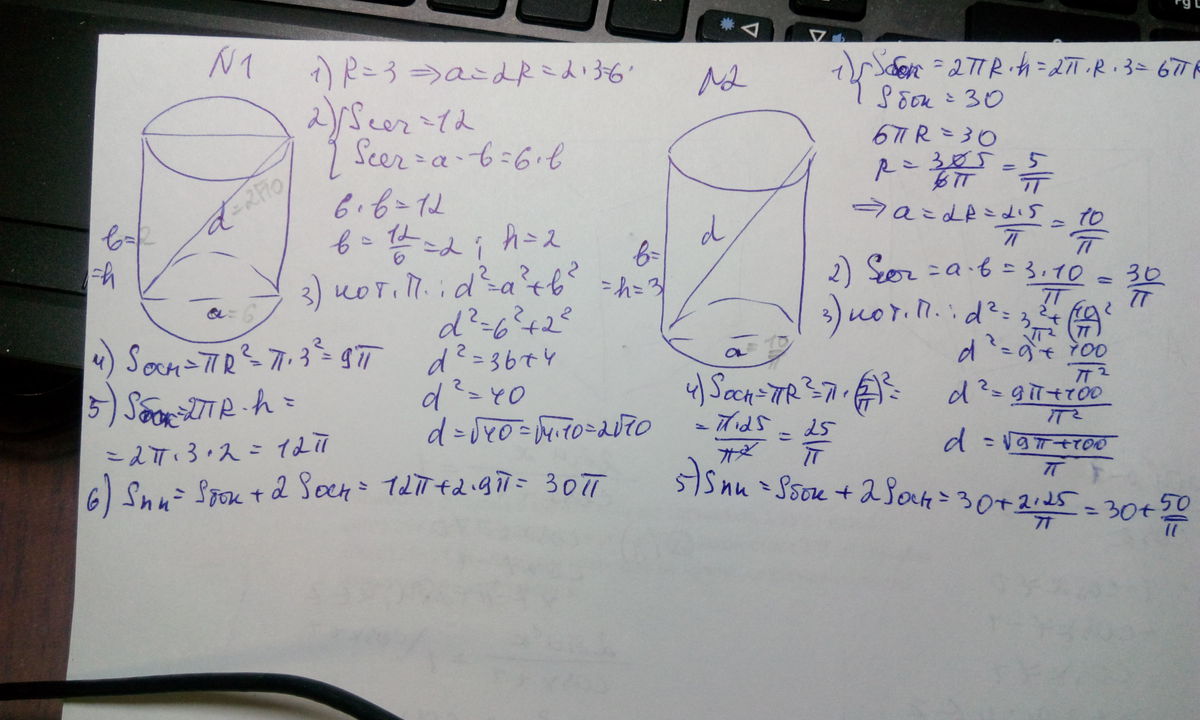 N1
1) R = 3 ⇒ a = 2R = 2·3 = 6
2) { Sсеч = 12
Sсеч = a·в = 6·в
6·в = 12
в = 12/6 = 2 ; h = 2
3) по т. П.: d² = a² + в²
d² = 6² + 2²
d² = 36 + 4
d² = 40
d = √40 = √4·10 = 2√10
в = 2
= h
d = 2√10
a = 6
4) Sосн = πR² = π·3² = 9π
5) Sбок = 2πR·h =
= 2π·3·2 = 12π
6) Sпп = Sбок + 2Sосн = 12π + 2·9π = 30π
N2
в =
= h = 3
d
a = 10/π
1) { Sбок = 2πR·h = 2π·R·3 = 6πR
Sбок = 30
6πR = 30
R = 30 5/6π = 5/π
⇒ a = 2R = 2·5/π = 10/π
2) Sсеч = a·в = 3·10/π = 30/π
3) по т. П.: d² = 3² + (10/π)²
d² = 9 + 100/π²
d² = 9π + 100/π²
d = √9π + 100/π
4) Sосн = πR² = π·(5/π)² =
= π·25/π² = 25/π
5) Sпп = Sбок + 2Sосн = 30 + 2·25/π = 30 + 50/π